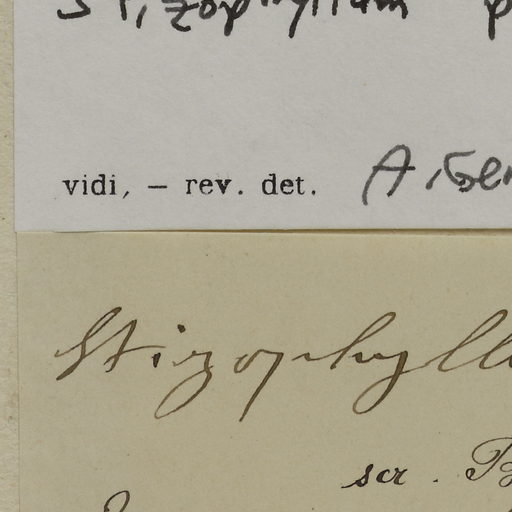 Stizophyllum p
vidi, — rev. det. A. Gen
Stizophyll
scr. B